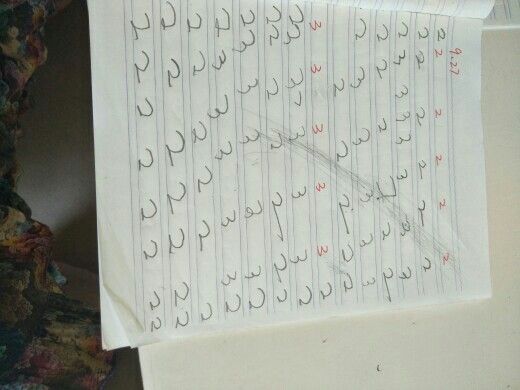 9.27
2 2 2 2 2 2
2 2 2 2 2 2
2 3 3 3 3 3 3
2 2 3 2 2 2
2 3 3 3 3 3
2 2 2 2 2
3 3 3 3 3 2
23 3 2 3 3 3 2
22 2 2 2 2 2
23 3 3 3 3 2
2 3 3 3 3 2
2 2 2 2 2 2
2 2 2 2 2 2 2
2 2 2 2 2 2 2 2